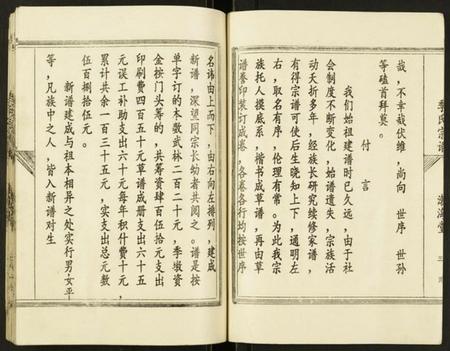 哉，不幸哉伏维，尚向 世序 世孙
等磕首拜奠。
付言
我们始祖建谱时已久远，由于社
会制度不断变化，始谱遗失，宗族活
动夭折多年，经族长研究续修家谱，
有得宗谱可使后生晚知上下，通明左
右，取名有序，伦理有常。为此我宗
族托人摸底系，楷书成草谱，再由草
谱卷印装订成卷，各卷各行均按世序
名讳由上而下，由右向左排列，建成
新谱，深望同宗长幼者共阅之。谱是按
单字订的本数武林二百二十元，季墩资
金按门头筹的，共筹资肆百伍拾元支出
印刷费四百五十元草谱成册支出六十五
元误工补助支出六十元每年积什费十元，
累计共余一百三十五元，实支出总元数
伍百捌拾伍元。
新谱建成与祖本相异之处实行男女平
等，凡族中之人，皆入新谱对生
李氏宗谱
堂
三